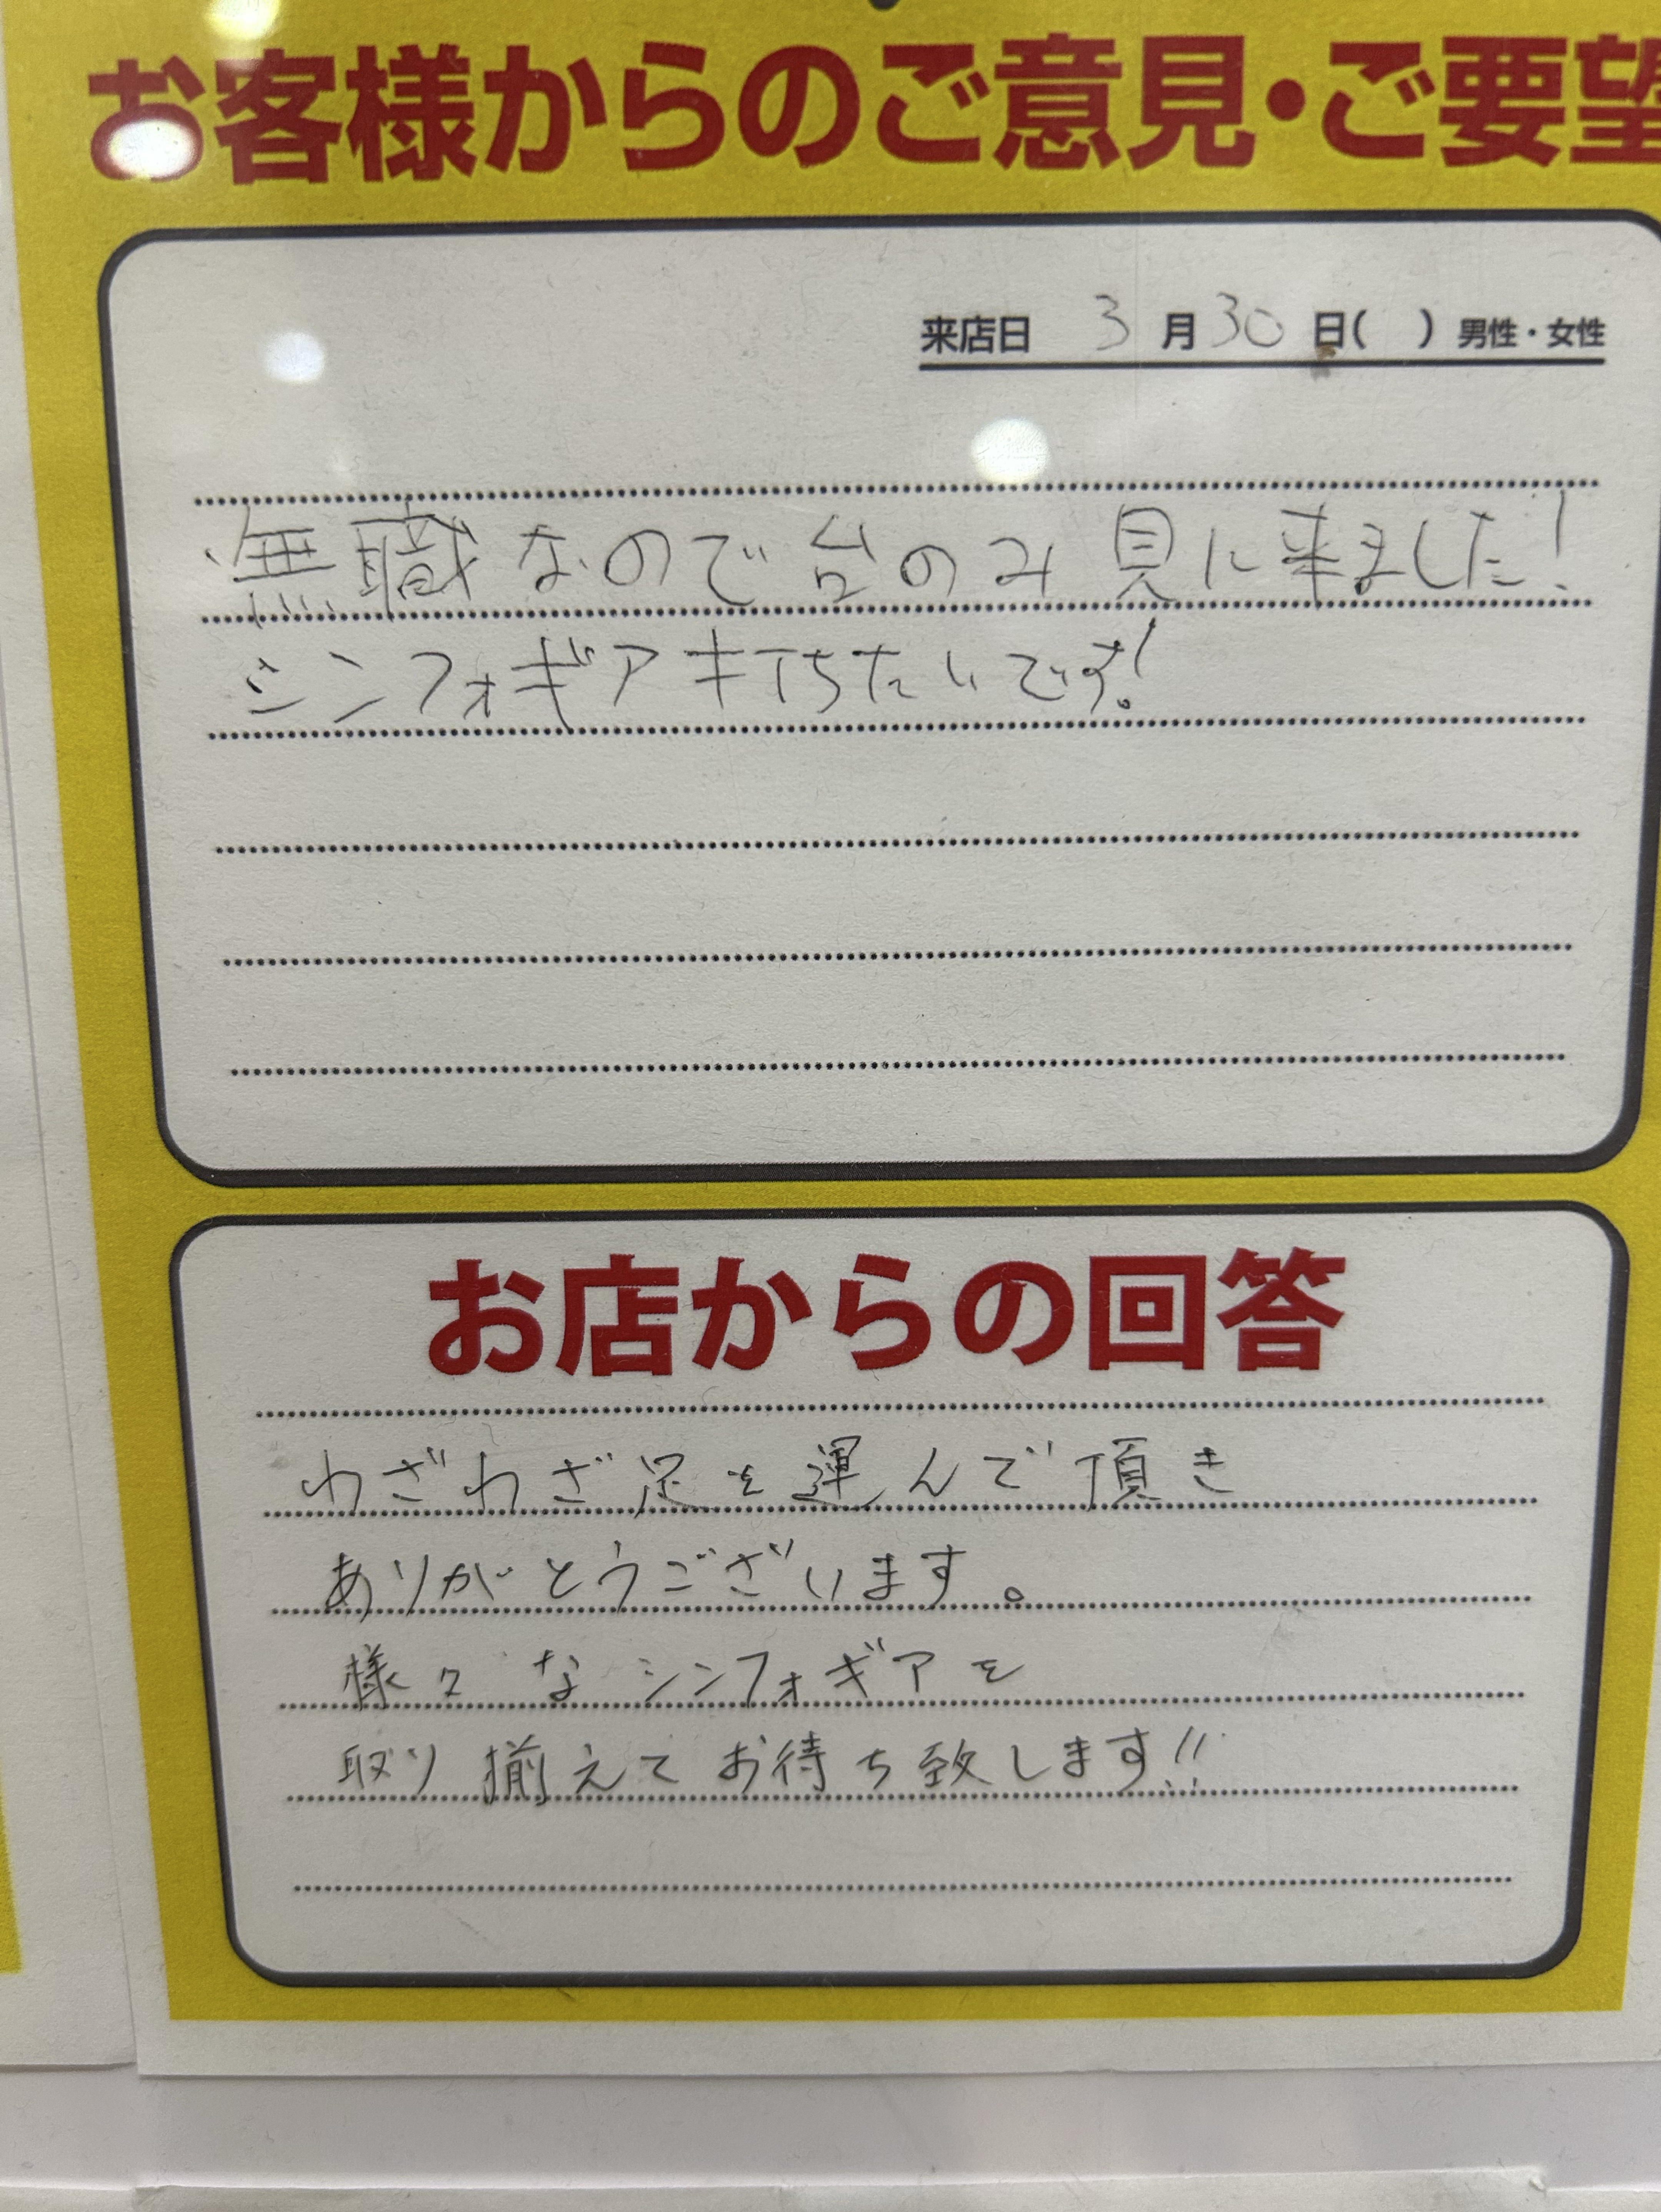 お客様からのご意見・ご要望
来店日 3月30日( ) 男性・女性
無職なので台のみ見に来ました!
シンフォギアキ打ちたいです!
お店からの回答
わざわざ足を運んで頂き
ありがとうございます。
様々なシンフォギアを
取り揃えてお待ち致します!!